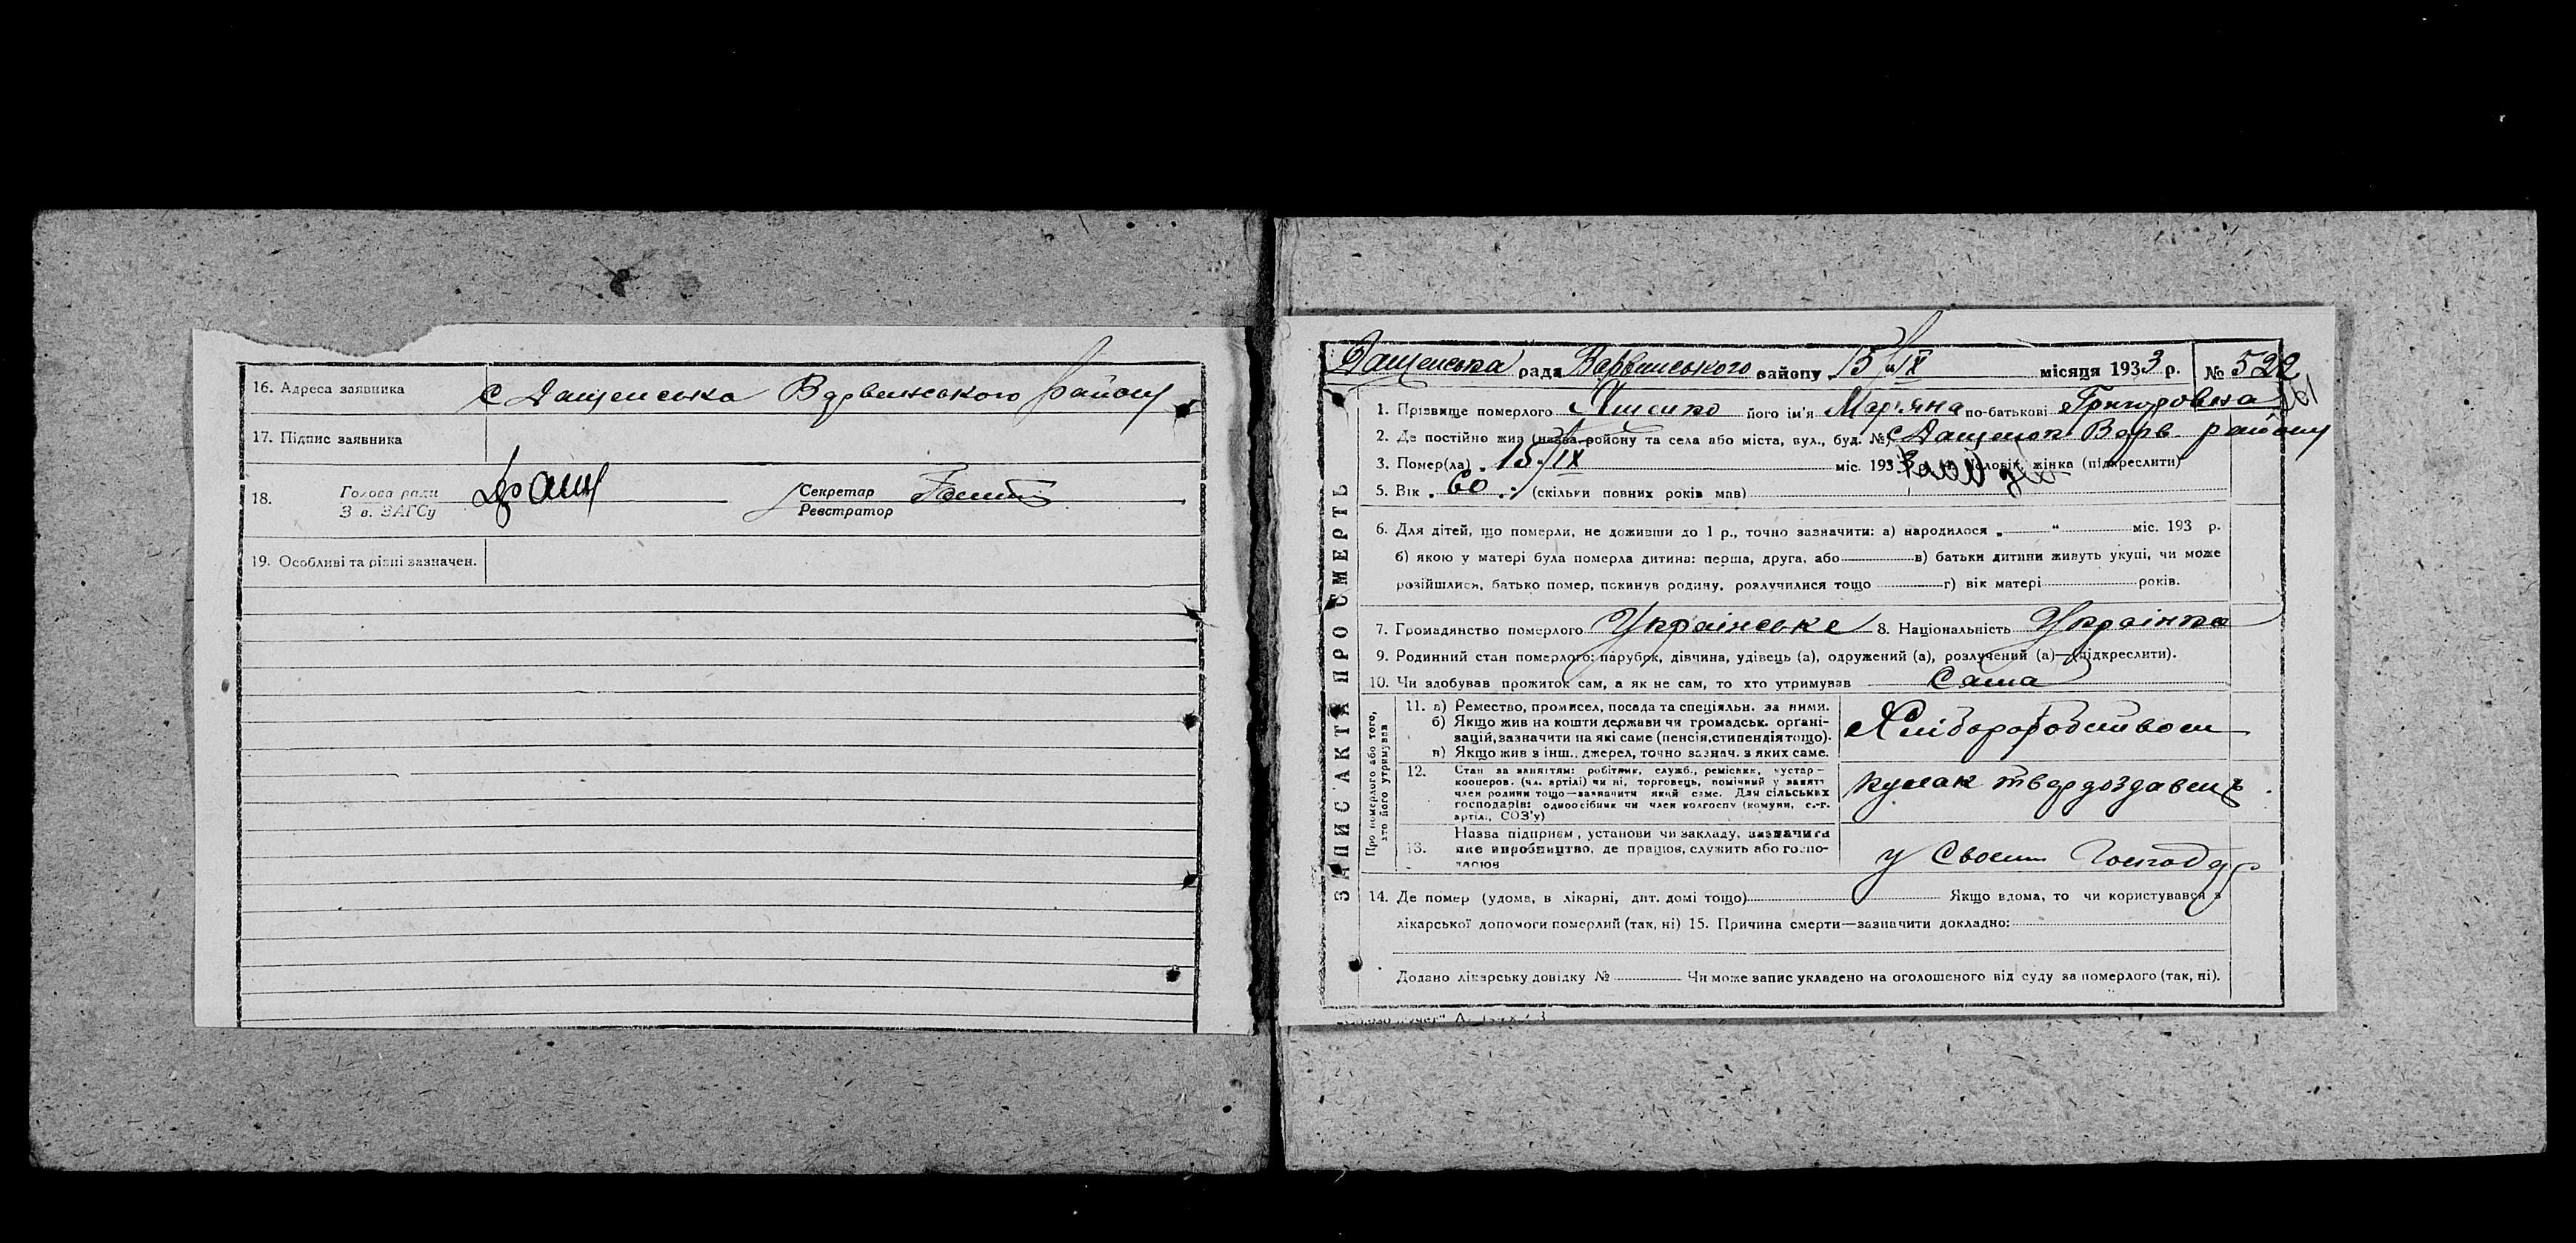 16. Адреса заявника с Дащенська Варвинського району
17. Підпис заявника
18. Голова ради
З в. ЗАГСу
Секретар
Реєстратор
19. Особливі та різні зазначен.
Дащенська рада Варвинського району 15/IX місяця 1933 р. № 522
ЗАПИС АКТА ПРО СМЕРТЬ
1. Прізвище померлого його ім'я Мар'яна по-батькові Григоровна
2. Де постійно жив (назва району та села або міста, вул., буд. № с Дащенки Варв. району
3. Помер(ла) „ 15/IX міс. 1933 р. 4. Чоловік, жінка (підкреслити)
5. Вік „ 60 „ (скільки повних років мав)
6. Для дітей, що померли, не доживши до 1 р., точно зазначити: а) народилося „ “ міс. 193 р.
б) якою у матері була померла дитина: перша, друга, або в) батьки дитини живуть укупі, чи може
розійшлися, батько помер, покинув родину, розлучилися тощо г) вік матері років.
7. Громадянство померлого Українське 8. Національність Українка
9. Родинний стан померлого: парубок, дівчина, удівець (а), одружений (а), розлучений (а)—(підкреслити).
10. Чи здобував прожиток сам, а як не сам, то хто утримував Сама
Про померлого або того, хто його утримував
11. а) Ремество, промисел, посада та спеціяльн. за ними.
б) Якщо жив на кошти держави чи громадськ. органі-
зацій, зазначити на які саме (пенсія, стипендія тощо).
в) Якщо жив з інш. джерел, точно зазнач. з яких саме.
Хліборобством
12. Стан за заняттям: робітник, служб., ремісник, кустар-
кооперов. (чл. артілі) чи ні, торговець, помічний у занятт
член родини тощо—зазначити який саме. Для сільських
господарів: одноосібник чи член колгоспу (комуни, с.-г.
артілі, СОЗ'у)
кулак твердоздавець
13. Назва підприєм, установи чи закладу, зазначити
яке виробництво, де працюв, служить або госпо-
дарюв
у своєму Господар
14. Де помер (удома, в лікарні, дит. домі тощо) Якщо вдома, то чи користувався з
лікарської допомоги померлий (так, ні) 15. Причина смерти—зазначити докладно:
Додано лікарську довідку № Чи може запис укладено на оголошеного від суду за померлого (так, ні).